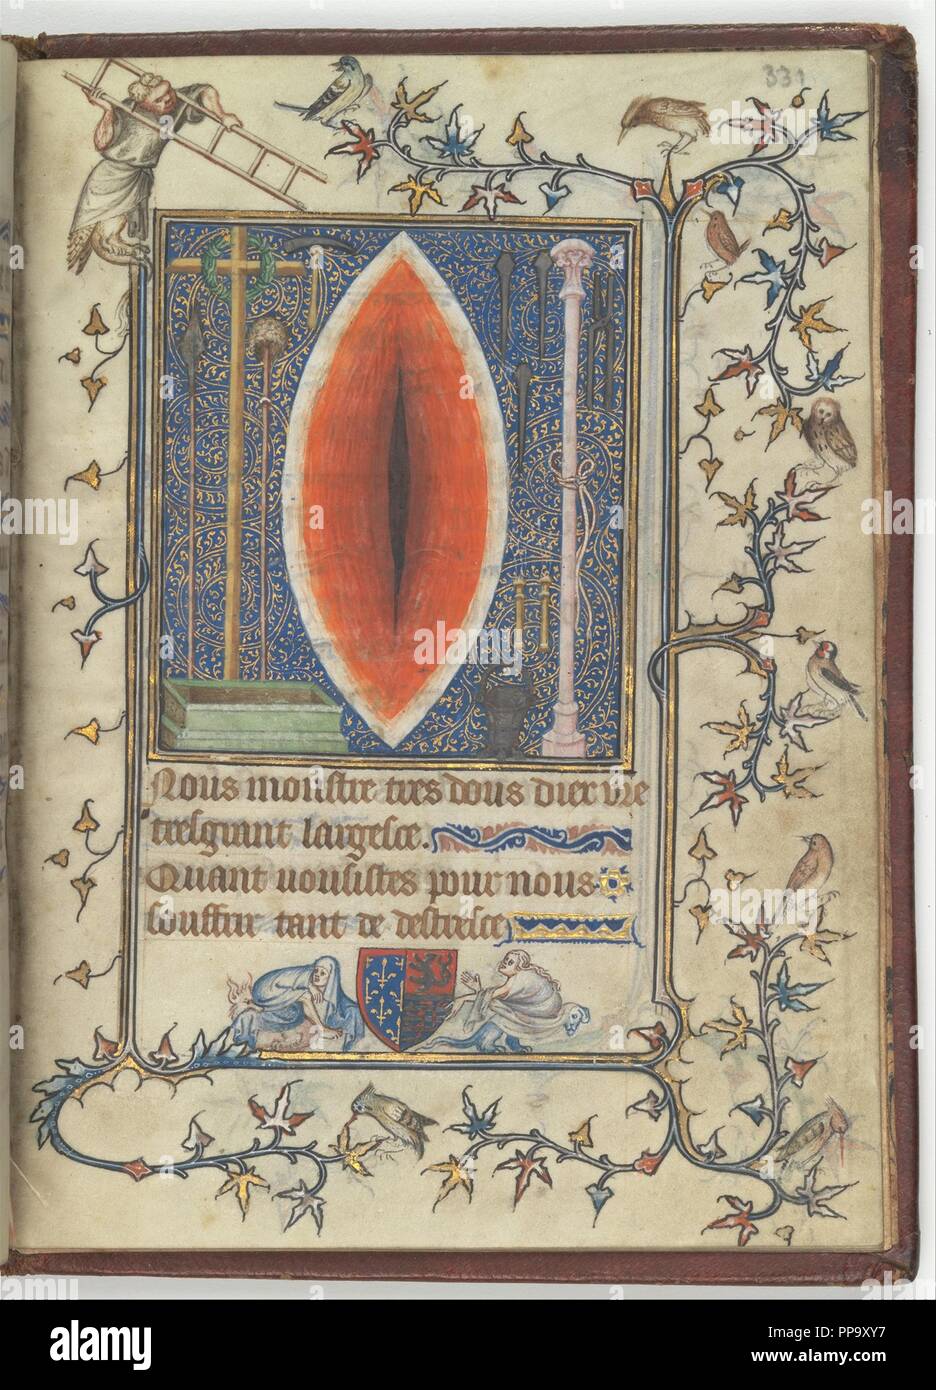 331
Nous monstre tres dous diex vre
tresgrant largesce.
Quant vousistes pour nous
souffrir tant de destresce
alamy
Image ID: PP9XY7
www.alamy.com